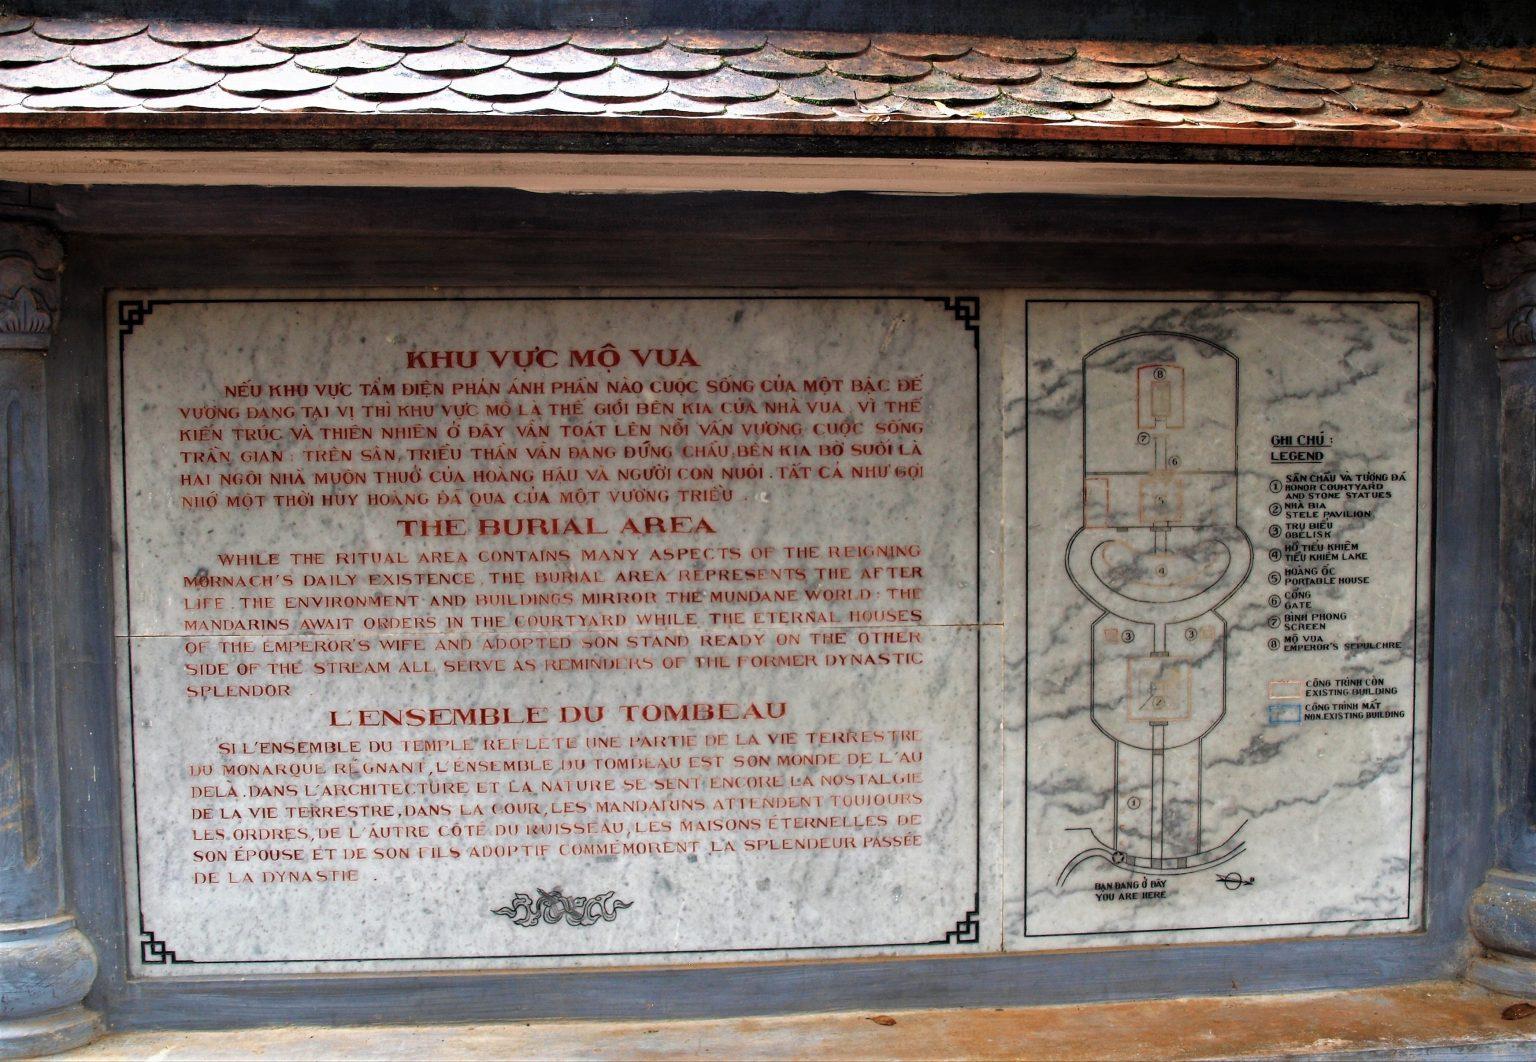 KHU VỰC MỘ VUA
NẾU KHU VỰC TẨM ĐIỆN PHẢN ÁNH PHẦN NÀO CUỘC SỐNG CỦA MỘT BẬC ĐẾ
VƯƠNG ĐANG TẠI VỊ THÌ KHU VỰC MỘ LÀ THẾ GIỚI BÊN KIA CỦA NHÀ VUA. VÌ THẾ
KIẾN TRÚC VÀ THIÊN NHIÊN Ở ĐÂY VẪN TOÁT LÊN NỖI VẤN VƯƠNG CUỘC SỐNG
TRẦN GIAN: TRÊN SÂN, TRIỀU THẦN VẪN ĐANG ĐỨNG CHẦU, BÊN KIA BỜ SUỐI LÀ
HAI NGÔI NHÀ MUÔN THUỞ CỦA HOÀNG HẬU VÀ NGƯỜI CON NUÔI. TẤT CẢ NHƯ GỢI
NHỚ MỘT THỜI HUY HOÀNG ĐÃ QUA CỦA MỘT VƯƠNG TRIỀU.
THE BURIAL AREA
WHILE THE RITUAL AREA CONTAINS MANY ASPECTS OF THE REIGNING
MORNACH'S DAILY EXISTENCE, THE BURIAL AREA REPRESENTS THE AFTER
LIFE. THE ENVIRONMENT AND BUILDINGS MIRROR THE MUNDANE WORLD: THE
MANDARINS AWAIT ORDERS IN THE COURTYARD WHILE THE ETERNAL HOUSES
OF THE EMPEROR'S WIFE AND ADOPTED SON STAND READY ON THE OTHER
SIDE OF THE STREAM ALL SERVE AS REMINDERS OF THE FORMER DYNASTIC
SPLENDOR
L'ENSEMBLE DU TOMBEAU
SI L'ENSEMBLE DU TEMPLE REFLETE UNE PARTIE DE LA VIE TERRESTRE
DU MONARQUE RÉGNANT, L'ENSEMBLE DU TOMBEAU EST SON MONDE DE L'AU
DELÀ. DANS L'ARCHITECTURE ET LA NATURE SE SENT ENCORE LA NOSTALGIE
DE LA VIE TERRESTRE, DANS LA COUR, LES MANDARINS ATTENDENT TOUJOURS
LES ORDRES, DE L'AUTRE CÔTÉ DU RUISSEAU, LES MAISONS ÉTERNELLES DE
SON ÉPOUSE ET DE SON FILS ADOPTIF COMMÉMORENT LA SPLENDEUR PASSÉE
DE LA DYNASTIE.
8
7
6
5
4
3 3
2
1
BẠN ĐANG Ở ĐÂY
YOU ARE HERE
GHI CHÚ:
LEGEND
1 SÂN CHẦU VÀ TƯỢNG ĐÁ
HONOR COURTYARD
AND STONE STATUES
2 NHÀ BIA
STELE PAVILION
3 TRỤ BIỂU
OBELISK
4 HỒ TIỂU KHIÊM
TIỂU KHIÊM LAKE
5 HOÀNG ỐC
PORTABLE HOUSE
6 CỔNG
GATE
7 BÌNH PHONG
SCREEN
8 MỘ VUA
EMPEROR'S SEPULCHRE
CÔNG TRÌNH CÒN
EXISTING BUILDING
CÔNG TRÌNH MẤT
NON.EXISTING BUILDING